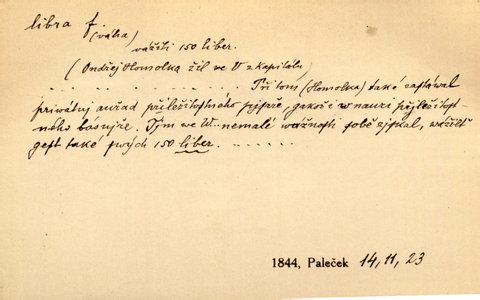 libra f.
(váha)
vážiti 150 liber.
(Ondřej Homolka žil we V z kapitálu)
. . . . . . . . . . . . . . . Při tom (Homolka) také zastáwal
priwátnj auřad přjležitostného pjsaře, gakož i w nauzi přjležitost-
ného básnjře. Tjm we W.. nemalé wážnosti sobě zjskal, wážilť
gest také swých 150 liber. . . . . . .
1844, Paleček 14, 11, 23